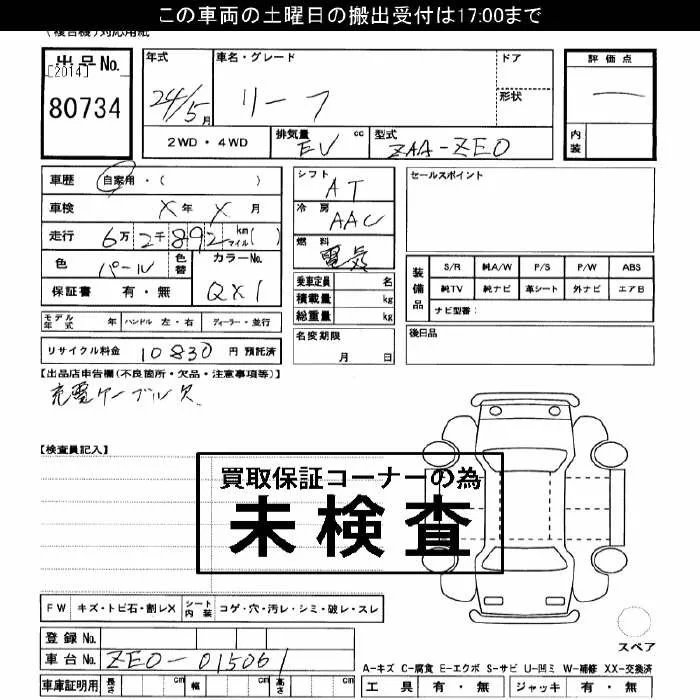 この車両の土曜日の搬出受付は17:00まで
(複合機)対応用紙
出品No.
[2014]
80734
年式 24/5月
車名・グレード リーフ
ドア
形状
評価点 ー
内装
2WD・4WD
排気量 EV cc
型式 ZAA-ZE0
車歴 自家用・( )
車検 X年 X月
走行 6万2千892 km マイル( )
色 パール 色替
カラーNo. QX1
保証書 有・無
シフト AT
冷房 AAC
燃料 電気
乗車定員 名
積載量 kg
総重量 kg
セールスポイント
装備品
S/R 純A/W P/S P/W ABS
純TV 純ナビ 革シート 外ナビ エアB
ナビ型番:
モデル年式 年 ハンドル 左・右 ディーラー・並行
名変期限 月 日
後日品
リサイクル料金 10830 円 預託済
【出品店申告欄(不良箇所・欠品・注意事項等)】
充電ケーブル欠
【検査員記入】
買取保証コーナーの為
未検査
FW キズ・トビ石・割レX
シート内装 コゲ・穴・汚レ・シミ・破レ・スレ
スペア
登録No.
車台No. ZE0-015061
A-キズ C-腐食 E-エクボ S-サビ U-凹ミ W-補修 XX-交換済
車庫証明用 長さ cm 幅 cm 高さ cm
工具 有・無 ジャッキ 有・無